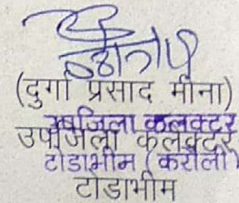 (दुर्गा प्रसाद मीना)
उपजिला कलक्टर
उपजिला कलेक्टर
टोडाभीम (करौली)
टोडाभीम